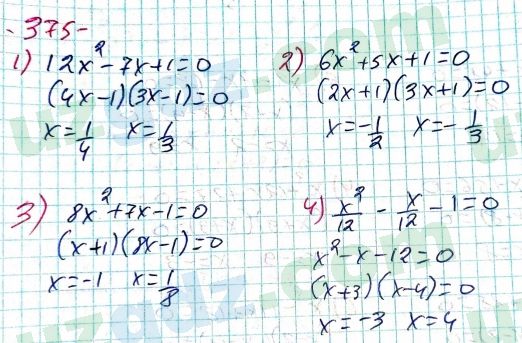 -375-
1) 12x²-7x+1=0
(4x-1)(3x-1)=0
x=1/4 x=1/3
2) 6x²+5x+1=0
(2x+1)(3x+1)=0
x=-1/2 x=-1/3
3) 8x²+7x-1=0
(x+1)(8x-1)=0
x=-1 x=1/8
4) x²/12 - x/12 - 1=0
x²-x-12=0
(x+3)(x-4)=0
x=-3 x=4